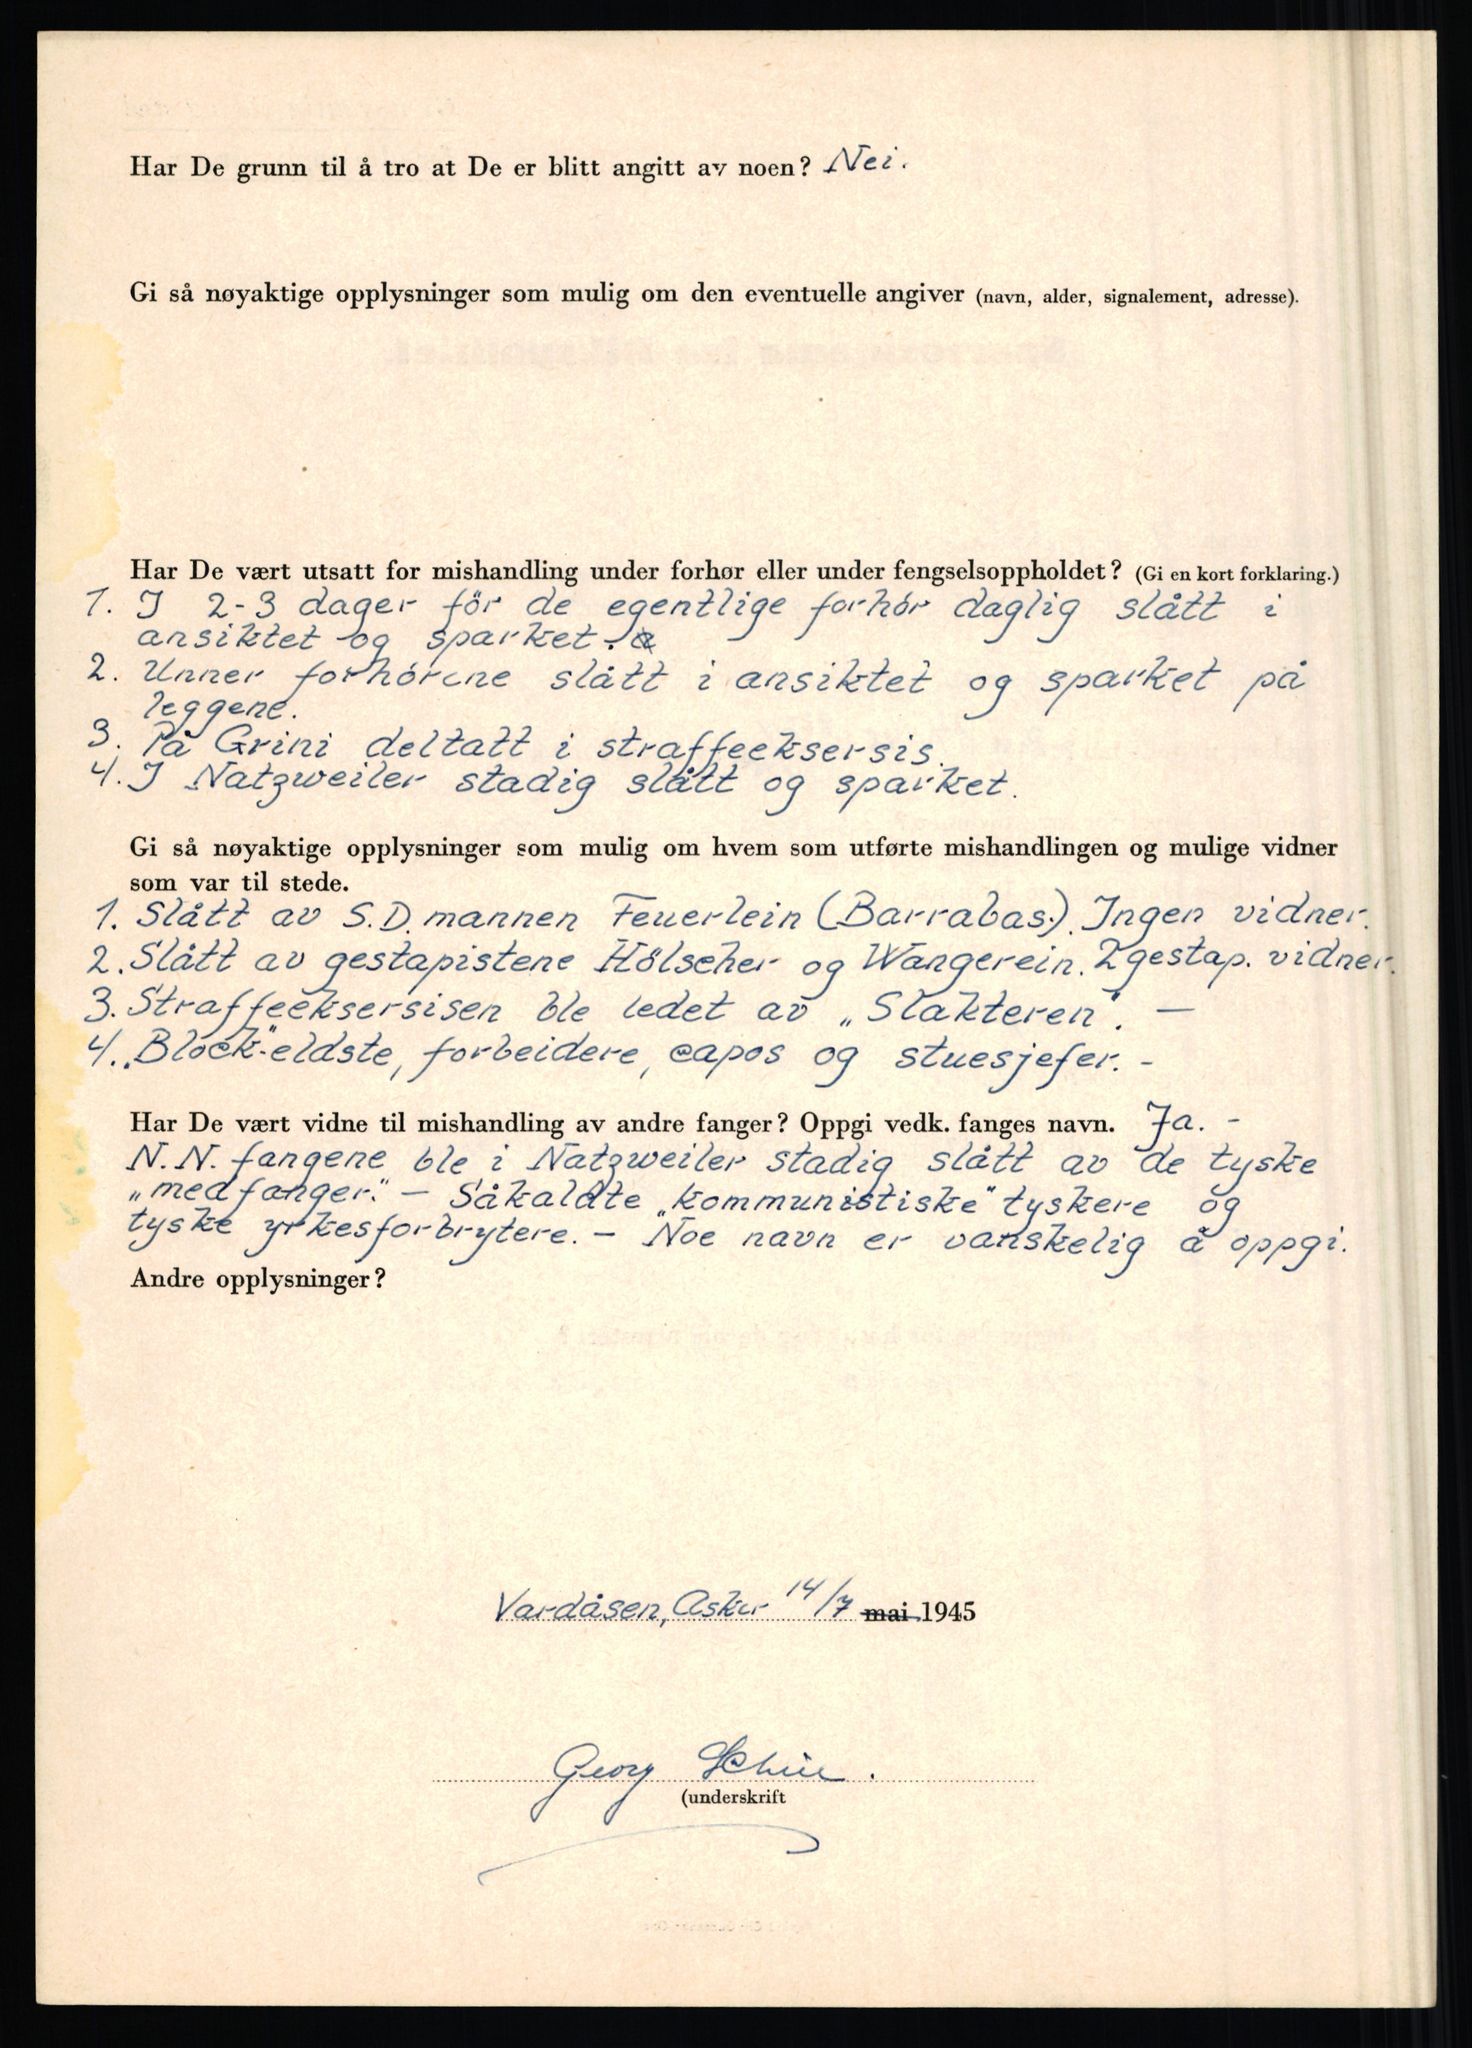 Har De grunn til å tro at De er blitt angitt av noen? Nei.
Gi så nøyaktige opplysninger som mulig om den eventuelle angiver (navn, alder, signalement, adresse).
Har De vært utsatt for mishandling under forhør eller under fengselsoppholdet? (Gi en kort forklaring.)
1. I 2-3 dager för de egentlige forhör daglig slått i
ansiktet og sparket.
2. Unner forhörene slått i ansiktet og sparket på
leggene.
3. På Grini deltatt i straffeeksersis.
4. I Natzweiler stadig slått og sparket.
Gi så nøyaktige opplysninger som mulig om hvem som utførte mishandlingen og mulige vidner
som var til stede.
1. Slått av S.D. mannen Feuerlein (Barrabas). Ingen vidner.
2. Slått av gestapistene Hölscher og Wangerein. 2 gestap. vidner.
3. Straffeeksersisen ble ledet av „Slakteren". —
4. „Block"-eldste, forbeidere, capos og stuesjefer. -
Har De vært vidne til mishandling av andre fanger? Oppgi vedk. fanges navn. Ja. -
N.N. fangene ble i Natzweiler stadig slått av de tyske
„medfanger." - Såkaldte „kommunistiske" tyskere og
tyske yrkesforbrytere. - Noe navn er vanskelig å oppgi.
Andre opplysninger?
Vardåsen, Asker 14/7 mai 1945
Georg
(underskrift